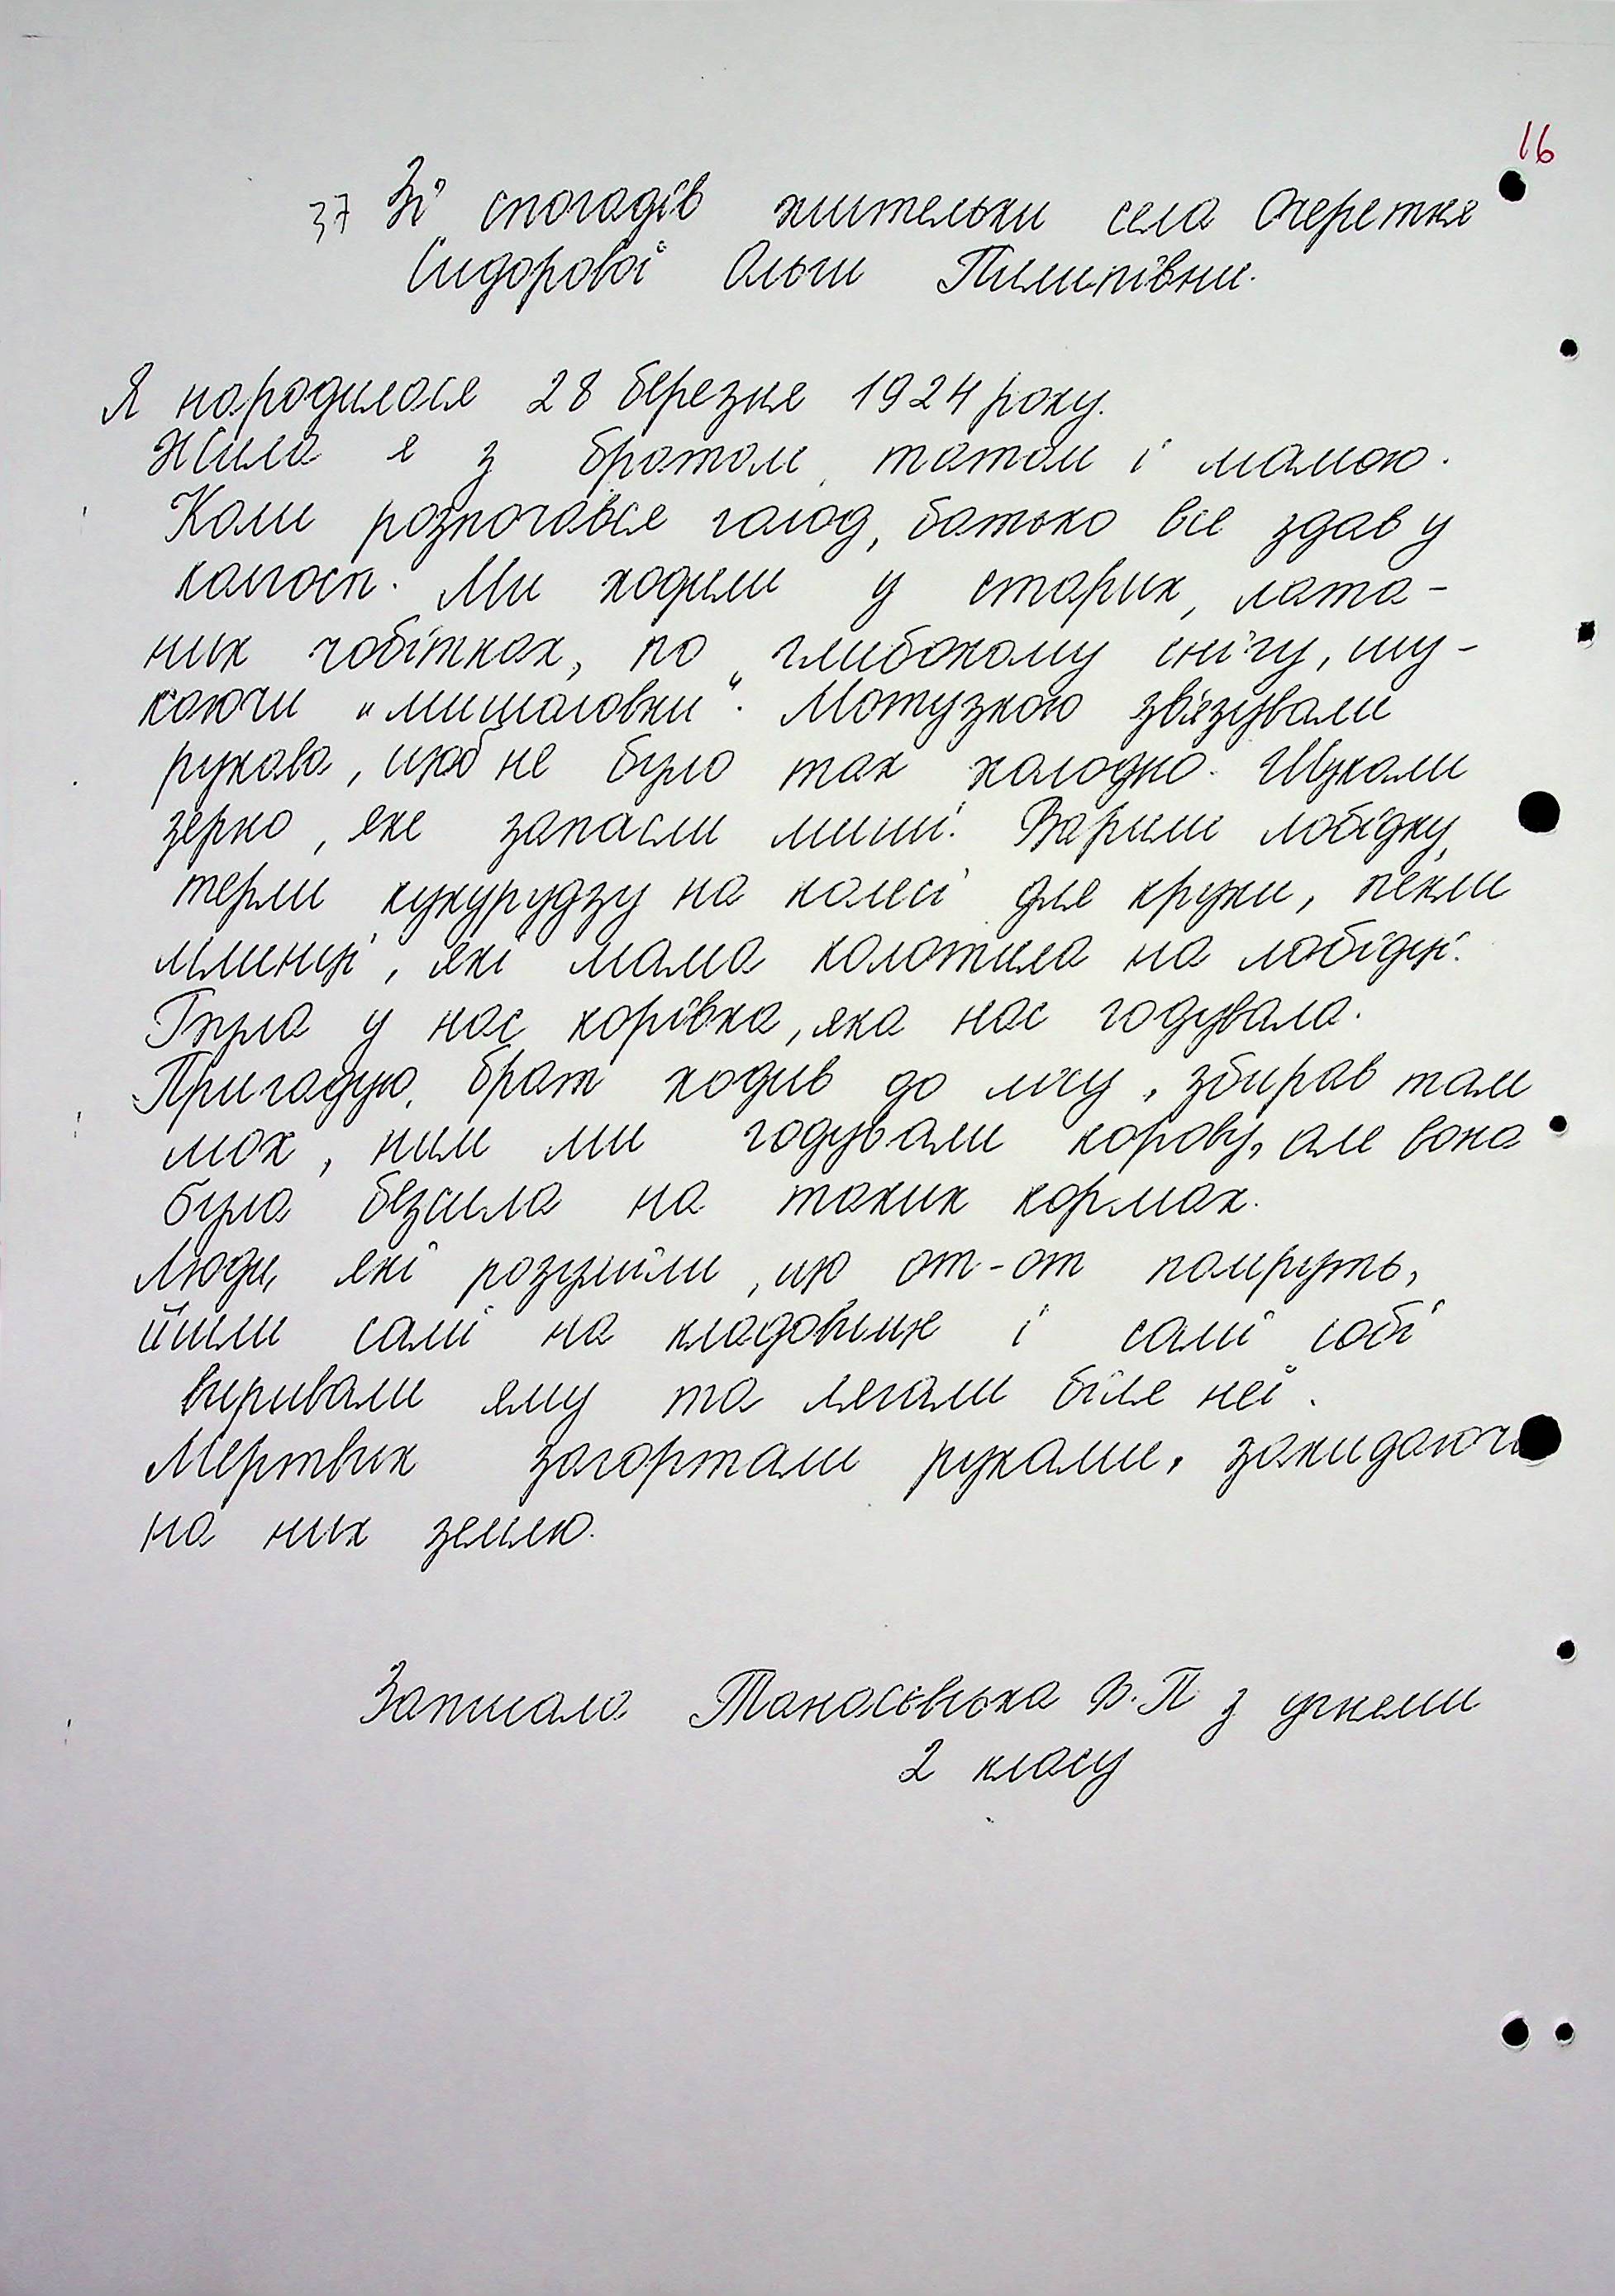 16
37 Зі спогадів жительки села Очеретня
Сидорової Ольги Пилипівни.
Я народилася 28 березня 1924 року.
Жила я з братом, татом і мамою.
Коли розпочався голод, батько все здав у
колгосп. Ми ходили у старих, лата-
них чобітках, по глибокому снігу, шу-
каючи "мишаловки". Мотузкою звязували
рукава, щоб не було так холодно. Шукали
зерно, яке запасли миші. Варили лобідку,
терли кукурудзу на колесі для крупи, пекли
млинці, які мама колотила на лободі.
Була у нас корівка, яка нас годувала.
Пригадую, брат ходив до лісу, збирав там
мох, ним ми годували корову, але вона
була безсила на таких кормах.
Люди, які розуміли, що от-от помруть,
йшли самі на кладовище і самі собі
виривали яму та лягали біля неї.
Мертвих загортали руками, закидаючи
на них землю.
Записала Танасьвська В.П з учнями
2 класу